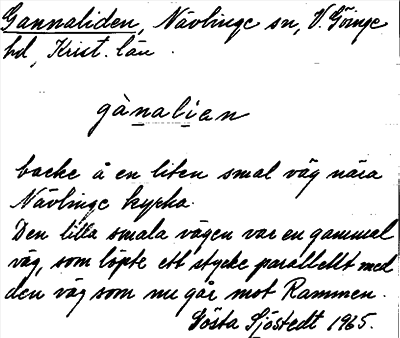 Gannaliden, Nävlinge sn, V. Göinge
hd, Krist. län.
gànalien
backe å en liten smal väg nära
Nävlinge kyrka.
Den lilla smala vägen var en gammal
väg, som löpte ett stycke parallellt med
den väg som nu går mot Rammen.
Gösta Sjöstedt 1965.